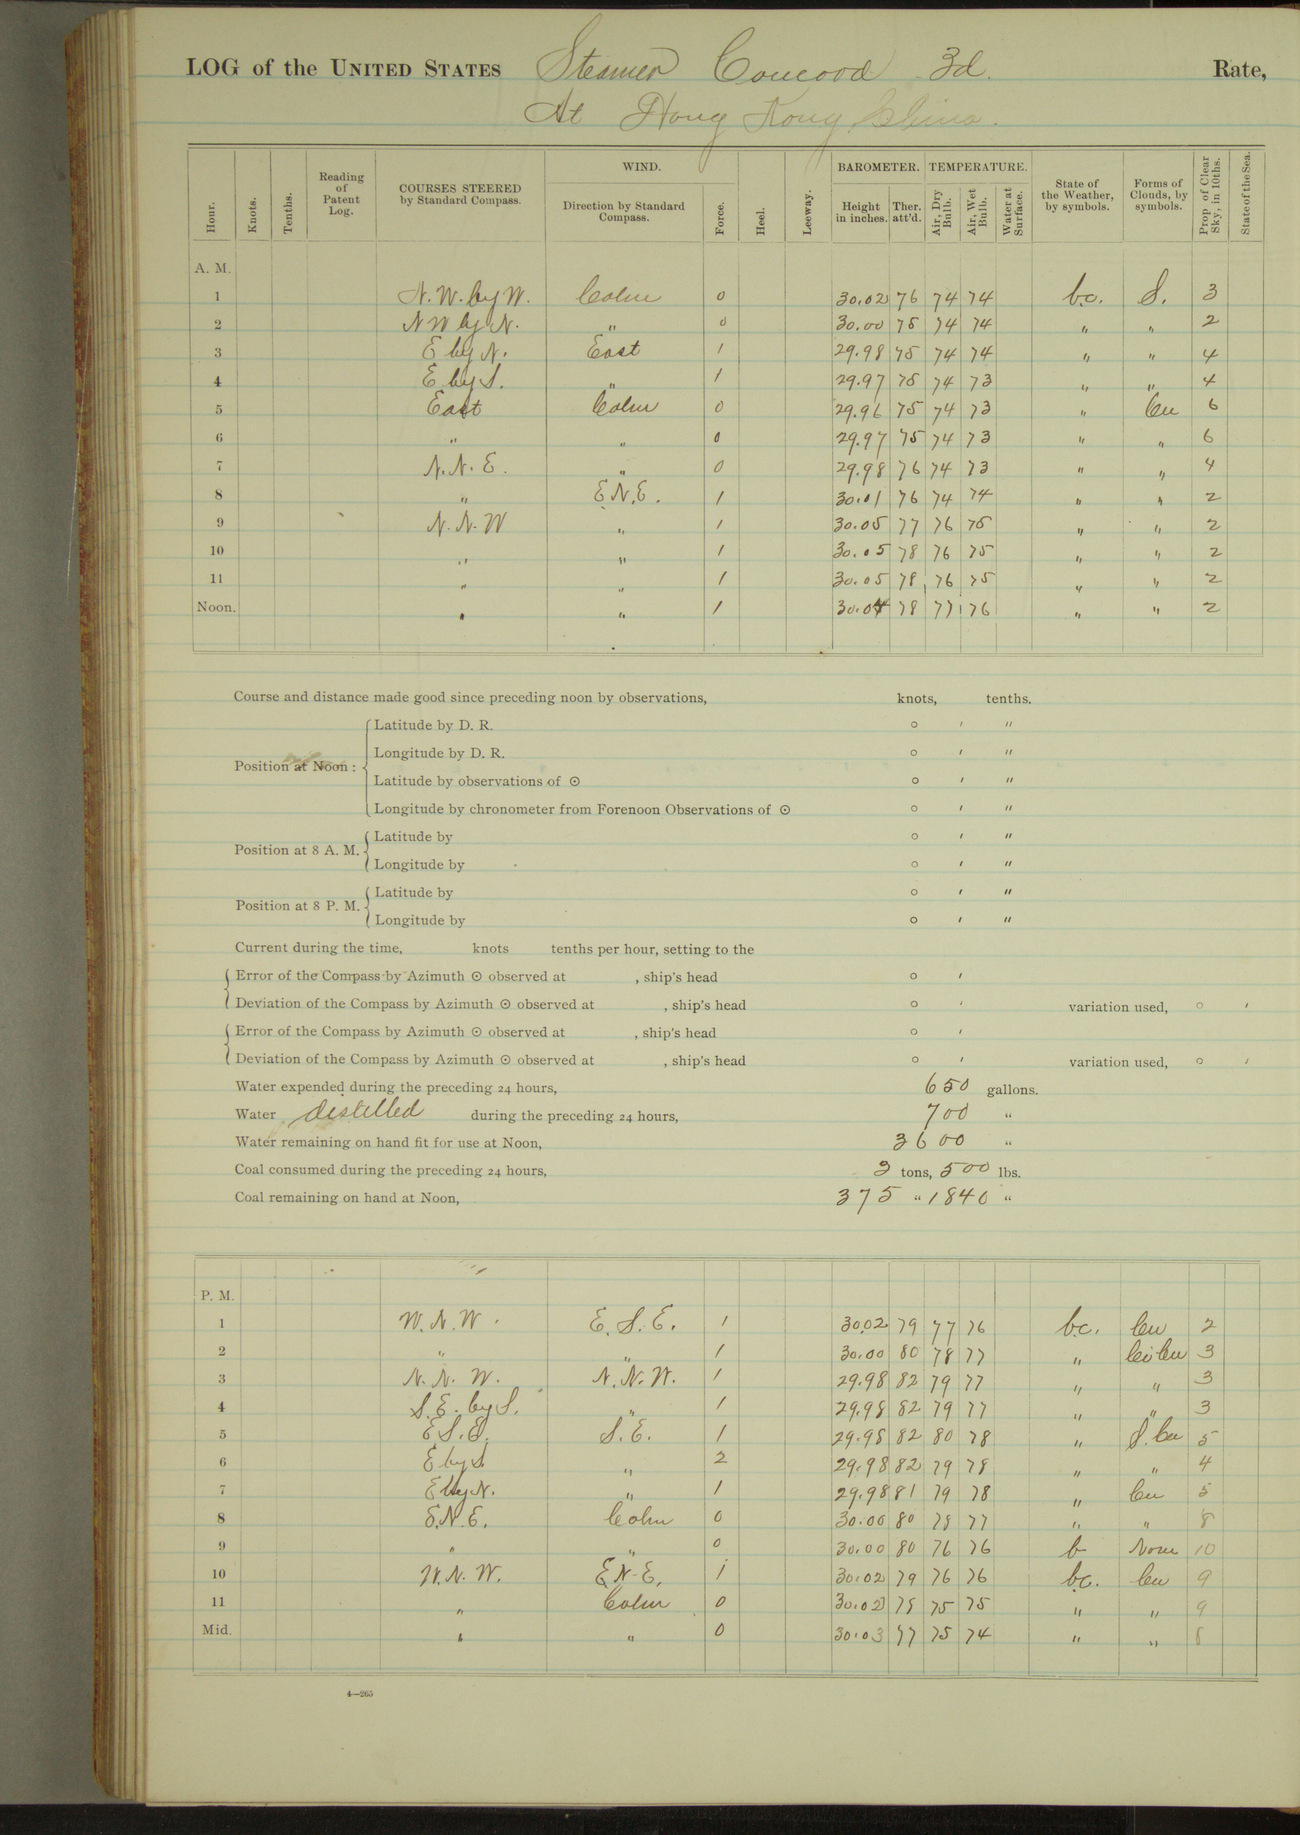 LOG of the UNITED STATES Steamer Concord 3d. Rate,
At Hong Kong China.
Hour. Knots. Tenths. Reading of Patent Log. COURSES STEERED by Standard Compass. WIND. Direction by Standard Compass. Force. Heel. Leeway. BAROMETER. Height in inches. Ther. att'd. TEMPERATURE. Air, Dry Bulb. Air, Wet Bulb. Water at Surface. State of the Weather, by symbols. Forms of Clouds, by symbols. Prop. of Clear Sky, in 10ths. State of the Sea.
A. M.
1 N.W. by W. Calm 0 30.02 76 74 74 bc. S. 3
2 NW by N. " 0 30.00 75 74 74 " " 2
3 E by N. East 1 29.98 75 74 74 " " 4
4 E by S. " 1 29.97 75 74 73 " " 4
5 East Calm 0 29.96 75 74 73 " Cu 6
6 " " 0 29.97 75 74 73 " " 6
7 N.N.E. " 0 29.98 76 74 73 " " 4
8 " E.N.E. 1 30.01 76 74 74 " " 2
9 N.N.W " 1 30.05 77 76 75 " " 2
10 " " 1 30.05 78 76 75 " " 2
11 " " 1 30.05 78 76 75 " " 2
Noon. " " 1 30.04 78 77 76 " " 2
Course and distance made good since preceding noon by observations, knots, tenths.
Position at Noon: Latitude by D. R. ° ′ ″
Longitude by D. R. ° ′ ″
Latitude by observations of ☉ ° ′ ″
Longitude by chronometer from Forenoon Observations of ☉ ° ′ ″
Position at 8 A. M. Latitude by ° ′ ″
Longitude by ° ′ ″
Position at 8 P. M. Latitude by ° ′ ″
Longitude by ° ′ ″
Current during the time, knots tenths per hour, setting to the
Error of the Compass by Azimuth ☉ observed at , ship's head ° ′
Deviation of the Compass by Azimuth ☉ observed at , ship's head ° ′ variation used, ° ′
Error of the Compass by Azimuth ☉ observed at , ship's head ° ′
Deviation of the Compass by Azimuth ☉ observed at , ship's head ° ′ variation used, ° ′
Water expended during the preceding 24 hours, 650 gallons.
Water distilled during the preceding 24 hours, 700 "
Water remaining on hand fit for use at Noon, 3600 "
Coal consumed during the preceding 24 hours, tons, 500 lbs.
Coal remaining on hand at Noon, 375 " 1840 "
P. M.
1 W.N.W. E.S.E. 1 30.02 79 77 76 bc. Cu 2
2 " " 1 30.00 80 78 77 " Ci Cu 3
3 N.N.W. N.N.W. 1 29.98 82 79 77 " " 3
4 S.E. by S. " 1 29.98 82 79 77 " " 3
5 E S.E. S.E. 1 29.98 82 80 78 " S. Cu 5
6 E by S " 2 29.98 82 79 78 " " 4
7 E by N. " 1 29.98 81 79 78 " Cu 5
8 E.N.E. Calm 0 30.00 80 78 77 " " 8
9 " " 0 30.00 80 76 76 b None 10
10 W.N.W. E.N.E. 1 30.02 79 76 76 bc. Cu 9
11 " Calm 0 30.02 75 75 " " 9
Mid. " " 0 30.03 77 75 74 " " 8
4—265